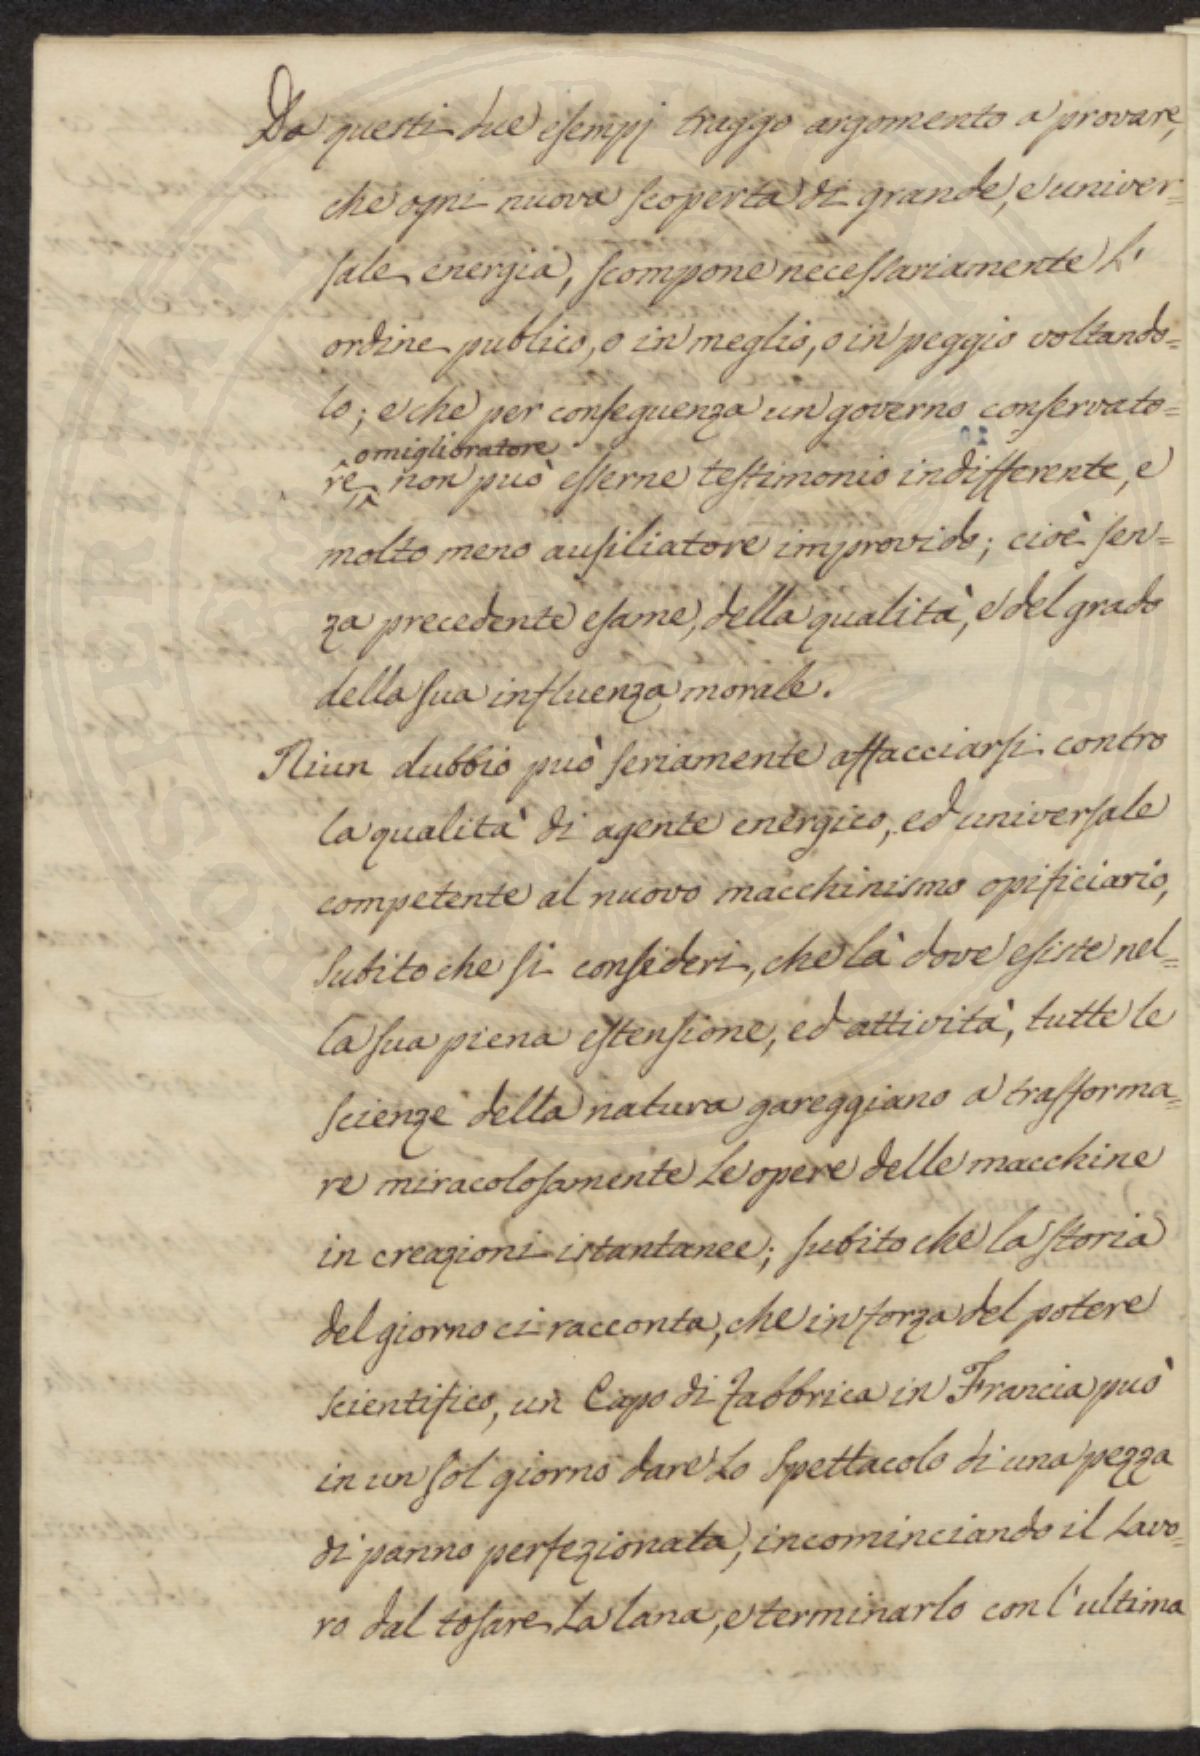 Da questi due esempj traggo argomento a provare,
che ogni nuova scoperta di grande, e univer=
sale energia, scompone necessariamente l'
ordine publico, o in meglio, o in peggio voltando=
lo; e che per conseguenza un governo conservato=
o miglioratore
re non può esserne testimonio indifferente, e
molto meno ausiliatore improvido; cioè sen=
za precedente esame, della qualità, e del grado
della sua influenza morale.
Niun dubbio può seriamente affacciarsi contro
la qualità di agente energico, ed universale
competente al nuovo macchinismo opificiario,
subito che si consideri, che là dove esiste nel=
la sua piena estensione, ed attività, tutte le
scienze della natura gareggiano a trasforma=
re miracolosamente le opere delle macchine
in creazioni istantanee; subito che la storia
del giorno ci racconta, che in forza del potere
scientifico, un Capo di Fabbrica in Francia può
in un sol giorno dare lo spettacolo di una pezza
di panno perfezionata, incominciando il lavo=
ro dal tosare la lana, e terminarlo con l'ultima